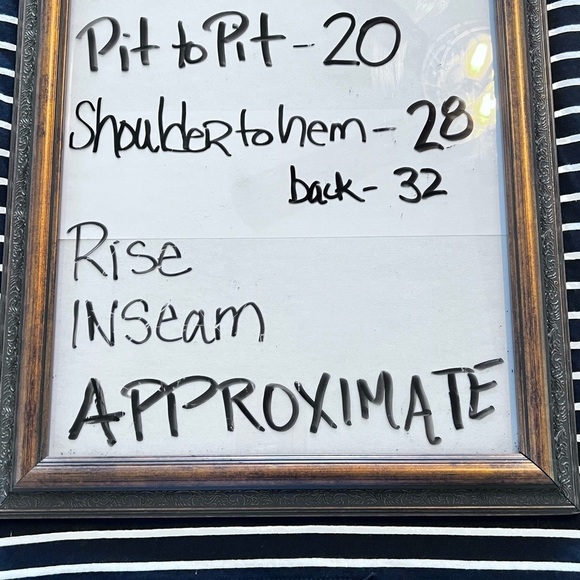 Pit to Pit - 20
Shoulder to hem - 28
back - 32
Rise
INSeam
APPROXIMATE